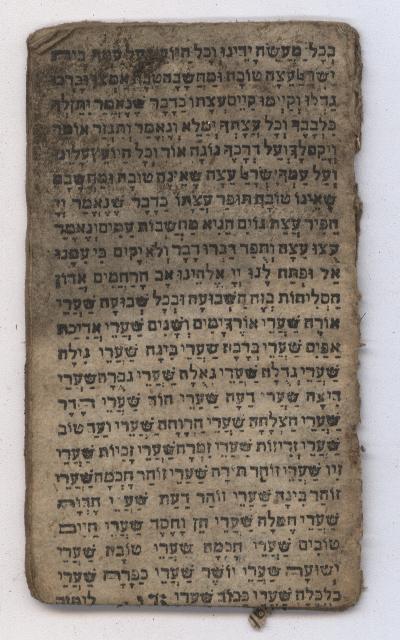 בְּכָל מַעֲשֵׂה יָדֵינוּ וְכָל הַיּוֹעֵץ עַל עַמְּךָ בֵּית
יִשְׂרָאֵל עֵצָה טוֹבָה וּמַחֲשָׁבָה טוֹבָה אַמְּצוֹ וּבָרְכוֹ
גַּדְּלוֹ וְקַיְּימוֹ קַיֵּים עֲצָתוֹ כַּדָּבָר שֶׁנֶּאֱמַר יִתֶּן לְךָ
כִלְבָבֶךָ וְכָל עֲצָתְךָ יְמַלֵּא וְנֶאֱמַר וְתִגְזַר אוֹמֶר
וְיָקָם לָךְ וְעַל דְּרָכֶיךָ נָגַהּ אוֹר וְכָל הַיּוֹעֵץ עָלֵינוּ
וְעַל עַמְּךָ יִשְׂרָאֵל עֵצָה שֶׁאֵינָהּ טוֹבָה וּמַחֲשָׁבָה
שֶׁאֵינוֹ טוֹבָה תּוּפַר עֲצָתוֹ כַּדָּבָר שֶׁנֶּאֱמַר יְיָ
הֵפִיר עֲצַת גּוֹיִם הֵנִיא מַחְשְׁבוֹת עַמִּים וְנֶאֱמַר
עֻצוּ עֵצָה וְתֻפָר דַּבְּרוּ דָבָר וְלֹא יָקוּם כִּי עִמָּנוּ
אֵל וּפְתַח לָנוּ יְיָ אֱלֹהֵינוּ אָב הָרַחֲמִים אֲדוֹן
הַסְּלִיחוֹת בְּזֶה הַשְּׁבוּעָה וּבְכָל שְׁבוּעָה שַׁעֲרֵי
אוֹרָה שַׁעֲרֵי אוֹרֶךְ יָמִים וְשָׁנִים שַׁעֲרֵי אֲרִיכַת
אַפַּיִם שַׁעֲרֵי בְּרָכָה שַׁעֲרֵי בִּינָה שַׁעֲרֵי גִּילָה
שַׁעֲרֵי גְּדֻלָּה שַׁעֲרֵי גְּאֻלָּה שַׁעֲרֵי גְּבוּרָה שַׁעֲרֵי
דִּיצָה שַׁעֲרֵי דֵעָה שַׁעֲרֵי הוֹד שַׁעֲרֵי הָדָר
שַׁעֲרֵי הַצְלָחָה שַׁעֲרֵי הַרְוָחָה שַׁעֲרֵי וַעַד טוֹב
שַׁעֲרֵי זְרִיזוֹת שַׁעֲרֵי זִמְרָה שַׁעֲרֵי זָכִיּוֹת שַׁעֲרֵי
זִיו שַׁעֲרֵי זוֹהַר תּוֹרָה שַׁעֲרֵי זוֹהַר חָכְמָה שַׁעֲרֵי
זוֹהַר בִּינָה שַׁעֲרֵי זוֹהַר דַּעַת שַׁעֲרֵי חֶדְוָה
שַׁעֲרֵי חֶמְלָה שַׁעֲרֵי חֵן וָחֶסֶד שַׁעֲרֵי חַיִּים
טוֹבִים שַׁעֲרֵי חָכְמָה שַׁעֲרֵי טוֹבָה שַׁעֲרֵי
יְשׁוּעָה שַׁעֲרֵי יוֹשֶׁר שַׁעֲרֵי כַּפָּרָה שַׁעֲרֵי
כַלְכָּלָה שַׁעֲרֵי כָּבוֹד שַׁעֲרֵי